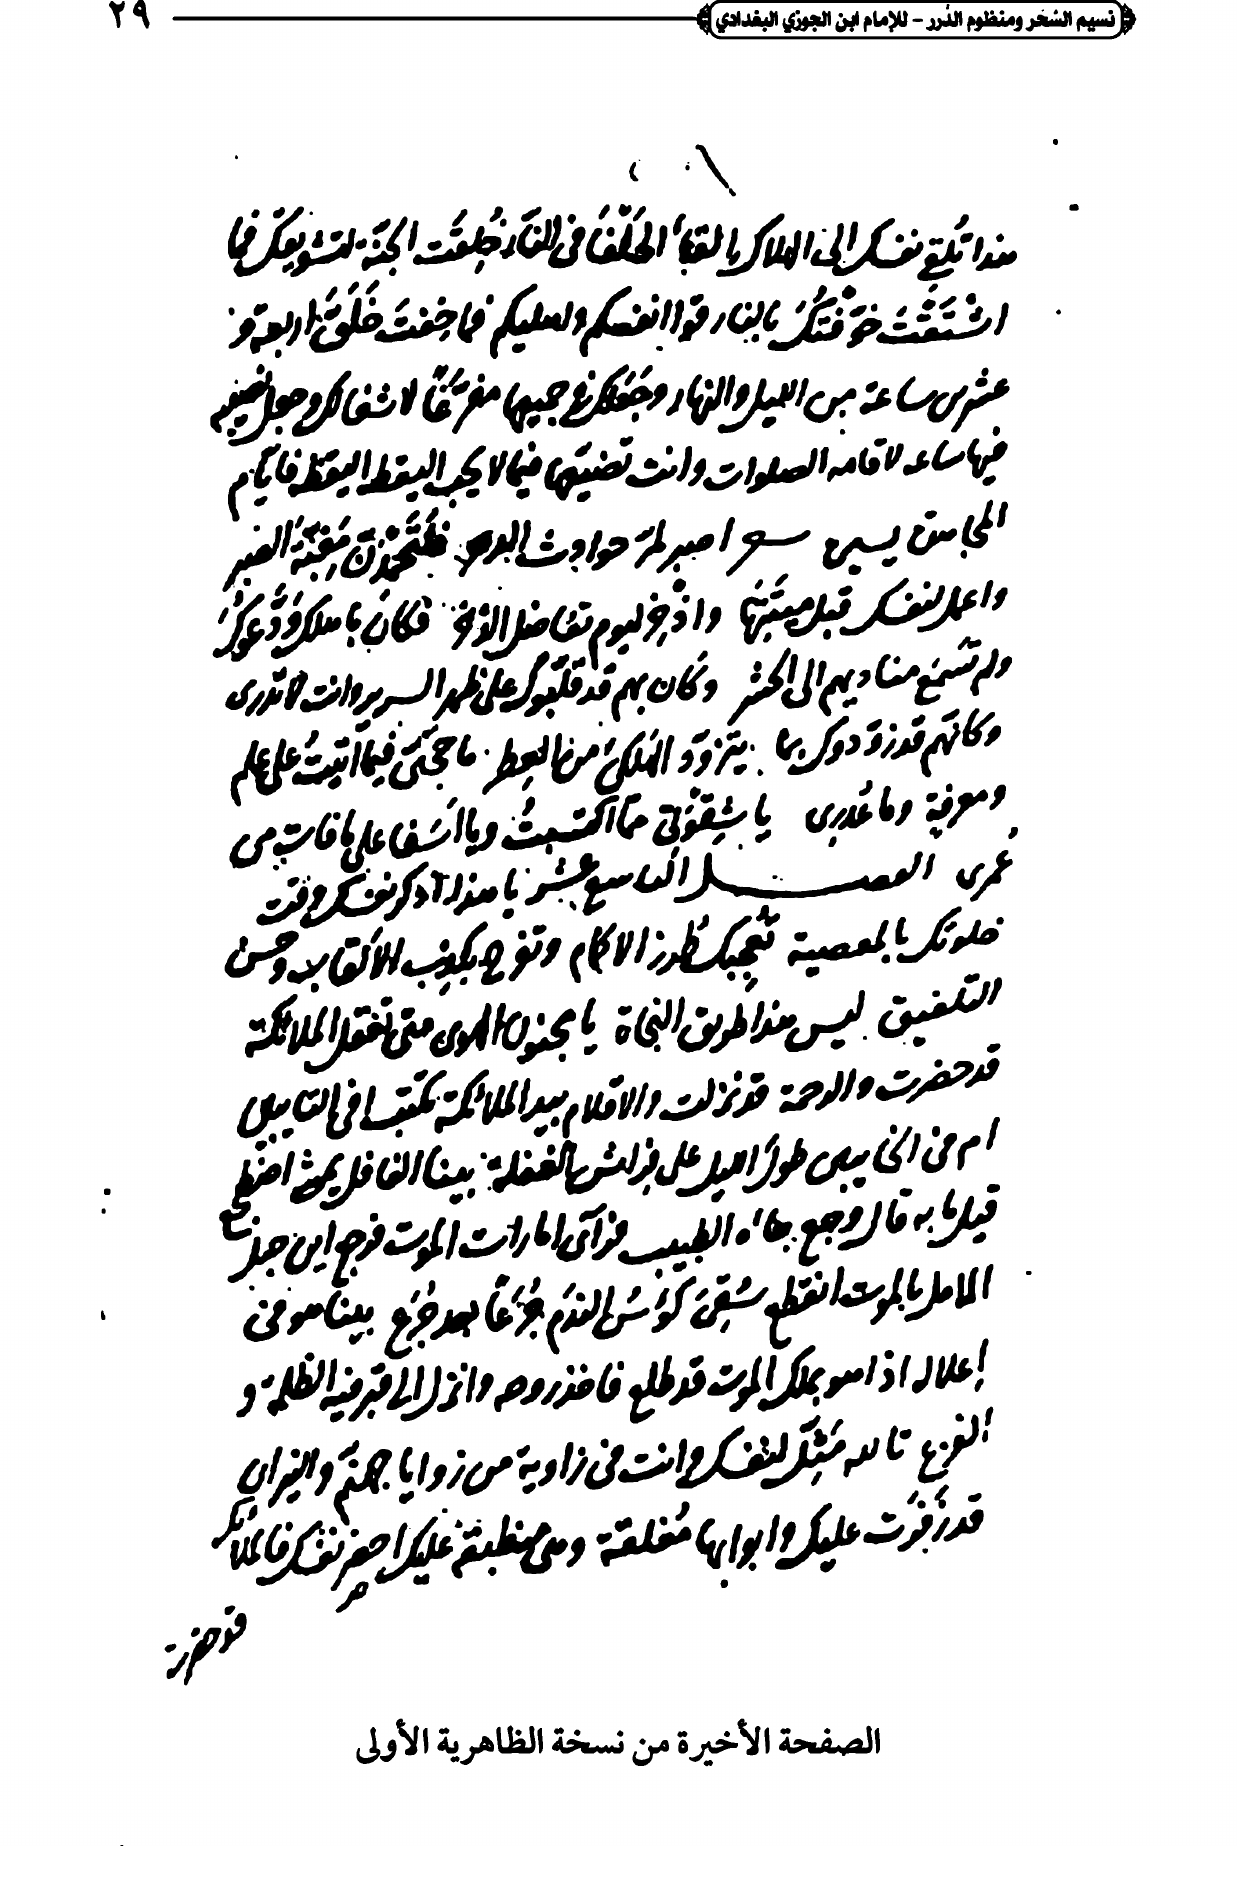 نسيم السَّحَر ومنظوم الدُّرر – للإمام ابن الجوزي البغدادي ٢٩
هذا تلقي نفسك الى الهلاك في النار خُلِقَت الجنَّة لتشويقك فما
اشْتَقْتَ خوَّفتُكَ بالنار قوا انفسكم واهليكم فما خِفتَ خَلَوتَ اربعة و
عشرين ساعة من الليل والنهار في جميعها مفرِّغًا لاشغالك وجعل نصيبه
فيها ساعه لاقامه الصلوات وانت تضيّعها فيما لا يجب اليقظه اليقظه فأيام
اصبر لمُر حوادث الدهر فلتحمدن مغبَّة الصبر
واعمل لنفسك قبل ميتتها واذْخر ليوم تفاضل الذُّخر فكأن باهلك قد دعوكَ
ولم تسمع مناديهم الى الحشر وكأن بهم قد قلَّبوك على ظهر السرير وانت لا تدرى
وكأنهم قد زوَّدوك بما يتزوَّد الهلكى من العطر ما حجَّتى فيما أتيتُ على علم
ومعرفة وما عُذرى يا شِقْوَتى ممَّا اكتسبتُ ويا أسَفا على ما فات من
عمرى الفصــل التاسع عشر يا هذا اذكر نفسك وقت
خلوتك بالمعصية تعجبك طُرز الاكمام وتفرح بكذب الألقاب وحسن
التلفيق ليس هذا طريق النجاة يا مجنون الهوى متى تعقل الملائكة
قد حضرت والرحمة قد نزلت والاقلام بيد الملائكة تكتب اسامى التايبين
ام من انت يبيت طولَ الليل على فراش الغفلة بينا الغافل يمشى اضطجع
قيل ما به قال وجع جاءه الطبيب فرأى امارات الموت فرجع اين حبل
الامل بالموت انقطع سُقِىَ كؤسَ الندم جُرَعًا بعد جُرَع بينا هو فى
إعلاله اذا هو بملك الموت قد طلع فاخذ روحه وانزل الى قبر فيه الظلمة و
الفزع تالله مَثِّل لنفسك وانت فى زاوية من زوايا جهنم والنيران
قد زَفَرَت عليك وابوابها مُغلقة وهى منطبقة عليك احضر نفسك فالملائكة
قد حضرت
الصفحة الأخيرة من نسخة الظاهرية الأولى